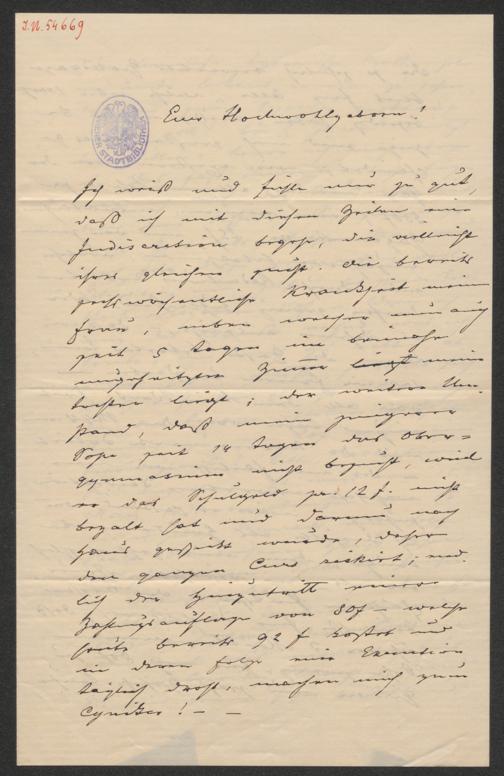 J.N. 54669
STADTBIBLIOTHEK
Euer Hochwohlgeboren!
Ich weiß und fühle nur zu gut,
daß ich mit diesen Zeilen eine
Indiscretion begehe, die vielleicht
ihres gleichen sucht. Die bereits
sechswöchentliche Krankheit meiner
Frau, neben welcher nun auch
seit 5 Tagen im beinahe
ungeheitzten Zimmer liegt meine
Tochter liegt; der weitere Um-
stand, daß mein jüngerer
Sohn seit 14 Tagen das Ober-
gymnasium nicht besucht, weil
er das Schulgeld pr 12 f. nicht
bezalt hat und darum nach
Haus geschickt wurde, daher
den ganzen Curs riskirt; end-
lich der Hinzutritt einer
Zahlungsauflage von 80 f – welche
heute bereits 92 f kostet und
in deren Folge eine Execution
täglich droht, machen mich zum
Cyniker! – –